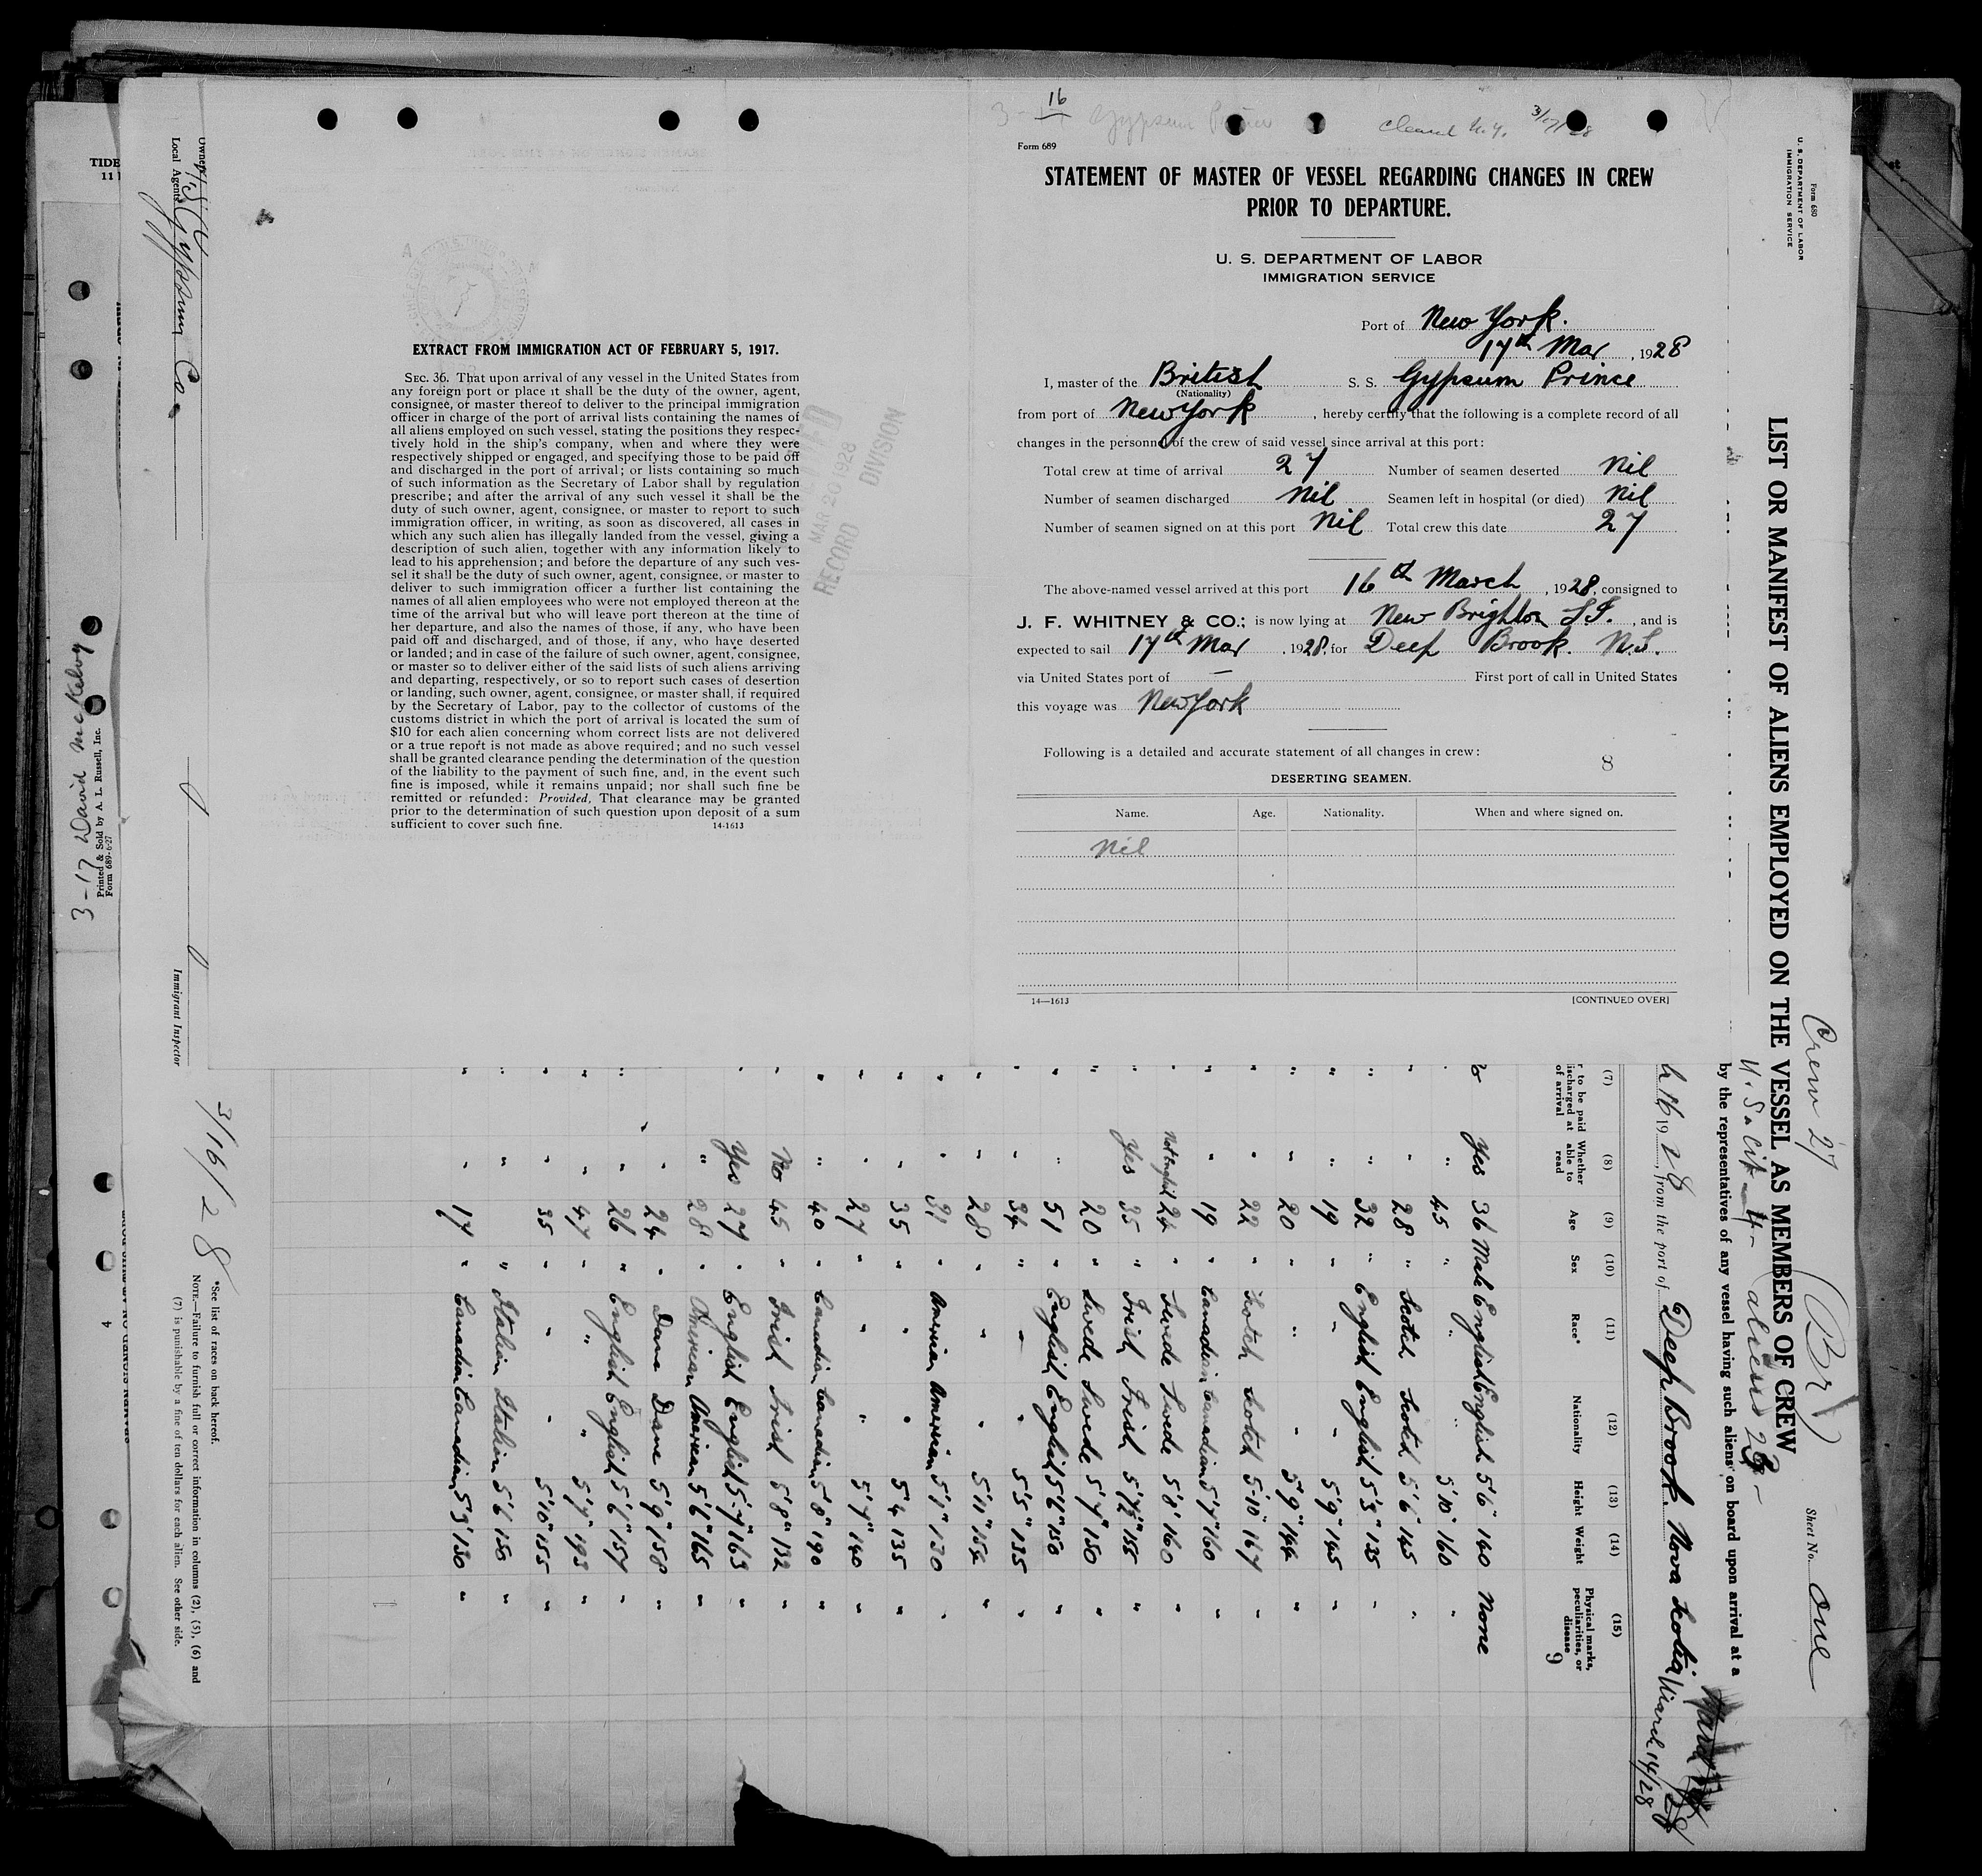 16
Gypsum Prince
Cleared N.Y. 3/17/28
Form 689
STATEMENT OF MASTER OF VESSEL REGARDING CHANGES IN CREW
PRIOR TO DEPARTURE.
U. S. DEPARTMENT OF LABOR
IMMIGRATION SERVICE
Port of New York.
17th Mar, 1928
I, master of the British S. S. Gypsum Prince
(Nationality)
from port of New York, hereby certify that the following is a complete record of all
changes in the personnel of the crew of said vessel since arrival at this port:
Total crew at time of arrival 27 Number of seamen deserted Nil
Number of seamen discharged Nil Seamen left in hospital (or died) Nil
Number of seamen signed on at this port Nil Total crew this date 27
The above-named vessel arrived at this port 16th March, 1928, consigned to
J. F. WHITNEY & CO.; is now lying at New Brighton S.I., and is
expected to sail 17th Mar, 1928, for Deep Brook. N.S.
via United States port of — First port of call in United States
this voyage was New York
Following is a detailed and accurate statement of all changes in crew:
8
DESERTING SEAMEN.
Name. Age. Nationality. When and where signed on.
Nil
14—1613 [CONTINUED OVER]
EXTRACT FROM IMMIGRATION ACT OF FEBRUARY 5, 1917.
SEC. 36. That upon arrival of any vessel in the United States from
any foreign port or place it shall be the duty of the owner, agent,
consignee, or master thereof to deliver to the principal immigration
officer in charge of the port of arrival lists containing the names of
all aliens employed on such vessel, stating the positions they respec-
tively hold in the ship's company, when and where they were
respectively shipped or engaged, and specifying those to be paid off
and discharged in the port of arrival; or lists containing so much
of such information as the Secretary of Labor shall by regulation
prescribe; and after the arrival of any such vessel it shall be the
duty of such owner, agent, consignee, or master to report to such
immigration officer, in writing, as soon as discovered, all cases in
which any such alien has illegally landed from the vessel, giving a
description of such alien, together with any information likely to
lead to his apprehension; and before the departure of any such ves-
sel it shall be the duty of such owner, agent, consignee, or master to
deliver to such immigration officer a further list containing the
names of all alien employees who were not employed thereon at the
time of the arrival but who will leave port thereon at the time of
her departure, and also the names of those, if any, who have been
paid off and discharged, and of those, if any, who have deserted
or landed; and in case of the failure of such owner, agent, consignee,
or master so to deliver either of the said lists of such aliens arriving
and departing, respectively, or so to report such cases of desertion
or landing, such owner, agent, consignee, or master shall, if required
by the Secretary of Labor, pay to the collector of customs of the
customs district in which the port of arrival is located the sum of
$10 for each alien concerning whom correct lists are not delivered
or a true report is not made as above required; and no such vessel
shall be granted clearance pending the determination of the question
of the liability to the payment of such fine, and, in the event such
fine is imposed, while it remains unpaid; nor shall such fine be
remitted or refunded: Provided, That clearance may be granted
prior to the determination of such question upon deposit of a sum
sufficient to cover such fine. 14-1613
MAR 20 1928
RECORD DIVISION
Form 680
U. S. DEPARTMENT OF LABOR
IMMIGRATION SERVICE
Crew 27 (Br) Sheet No. One
LIST OR MANIFEST OF ALIENS EMPLOYED ON THE VESSEL AS MEMBERS OF CREW
U.S. Cit - 4 - aliens 23 -
by the representatives of any vessel having such aliens on board upon arrival at a
16 1928, from the port of Deep Brook. Nova Scotia March 14/28
(7) (8) (9) (10) (11) (12) (13) (14) (15)
to be paid
discharged at
of arrival
Whether able to read
Age
Sex
Race*
Nationality
Height
Weight
Physical marks, peculiarities, or disease
9
Yes 36 Male English English 5'6" 140 None
" 45 " " " 5'10" 160 "
" 28 " Scotch Scotch 5'6" 145 "
" 32 " English English 5'3" 135 "
" 19 " " " 5'9" 145 "
" 20 " " " 5'9" 144 "
" 22 " Scotch Scotch 5'10" 167 "
" 19 " Canadian Canadian 5'7" 160 "
Not English 24 " Swede Swede 5'8" 160 "
Yes 35 " Irish Irish 5'7½" 155 "
20 " Swede Swede 5'7" 150 "
" 51 " English English 5'6" 150 "
" 34 " " " 5'5" 135 "
" 28 " " " 5'11" 154 "
" 31 " American American 5'1" 130 "
" 35 " " " 5'4 135 "
" 27 " " " 5'7" 140 "
" 40 " Canadian Canadian 5'8" 190 "
No 45 " Irish Irish 5'8" 132 "
Yes 27 " English English 5'7" 163 "
" 28 " American American 5'6" 165 "
" 24 " Dane Dane 5'9" 158 "
" 26 " English English 5'6" 157 "
" 47 " " " 5'7" 193 "
" 35 " " " 5'10" 155 "
" " Italian Italian 5'6 150 "
" 17 " Canadian Canadian 5'3" 130 "
*See list of races on back hereof.
NOTE.—Failure to furnish full or correct information in columns (2), (5), (6) and
(7) is punishable by a fine of ten dollars for each alien. See other side.
3/16/28
Immigrant Inspector
Owner U S Gypsum Co.
Local Agents
3-17 David McKelvy
Printed & Sold by A. L. Russell, Inc.
Form 689-6-27
TIDE
11
4